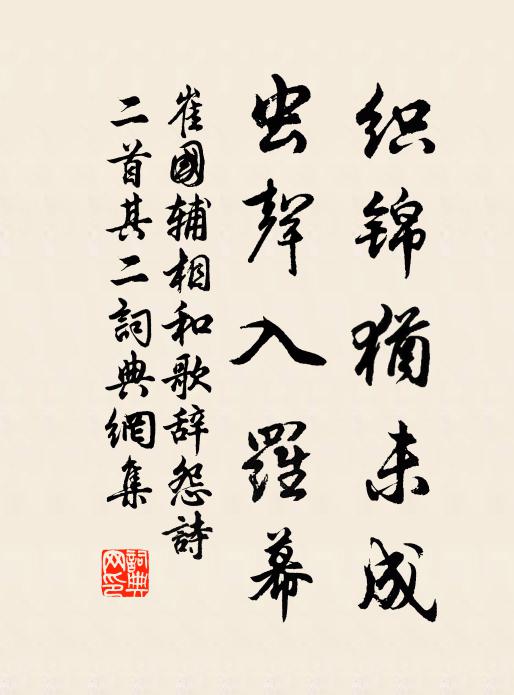 织锦犹未成
虫声入罗幕
崔國辅相和歌辞怨詩
二首其二詞典網集
詞典
网印